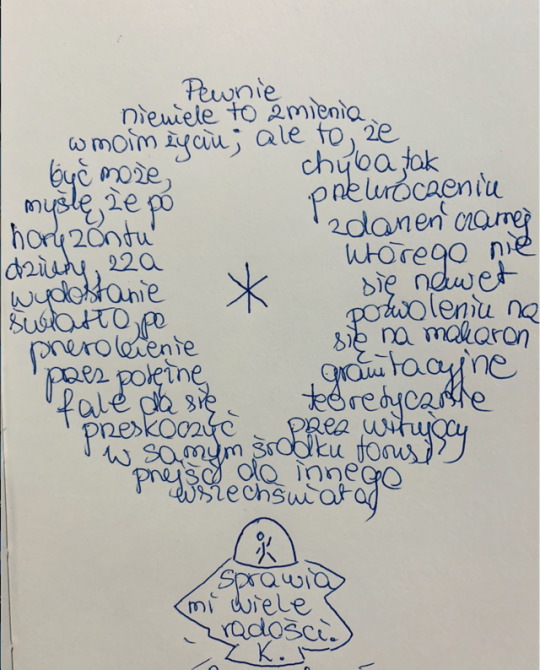 Pewnie
niewiele to zmienia
w moim życiu; ale to, że
być może, chyba, tak
myślę, że po przekroczeniu
horyzontu zdarzeń czarnej
dziury, zza którego nie
wydostanie się nawet
światło, po pozwoleniu na
przerobienie się na makaron
przez potężne grawitacyjne
fale da się teoretycznie
przeskoczyć przez wirujący
w samym środku torus i
przejść do innego
wszechświata
sprawia
mi wiele
radości.
K.